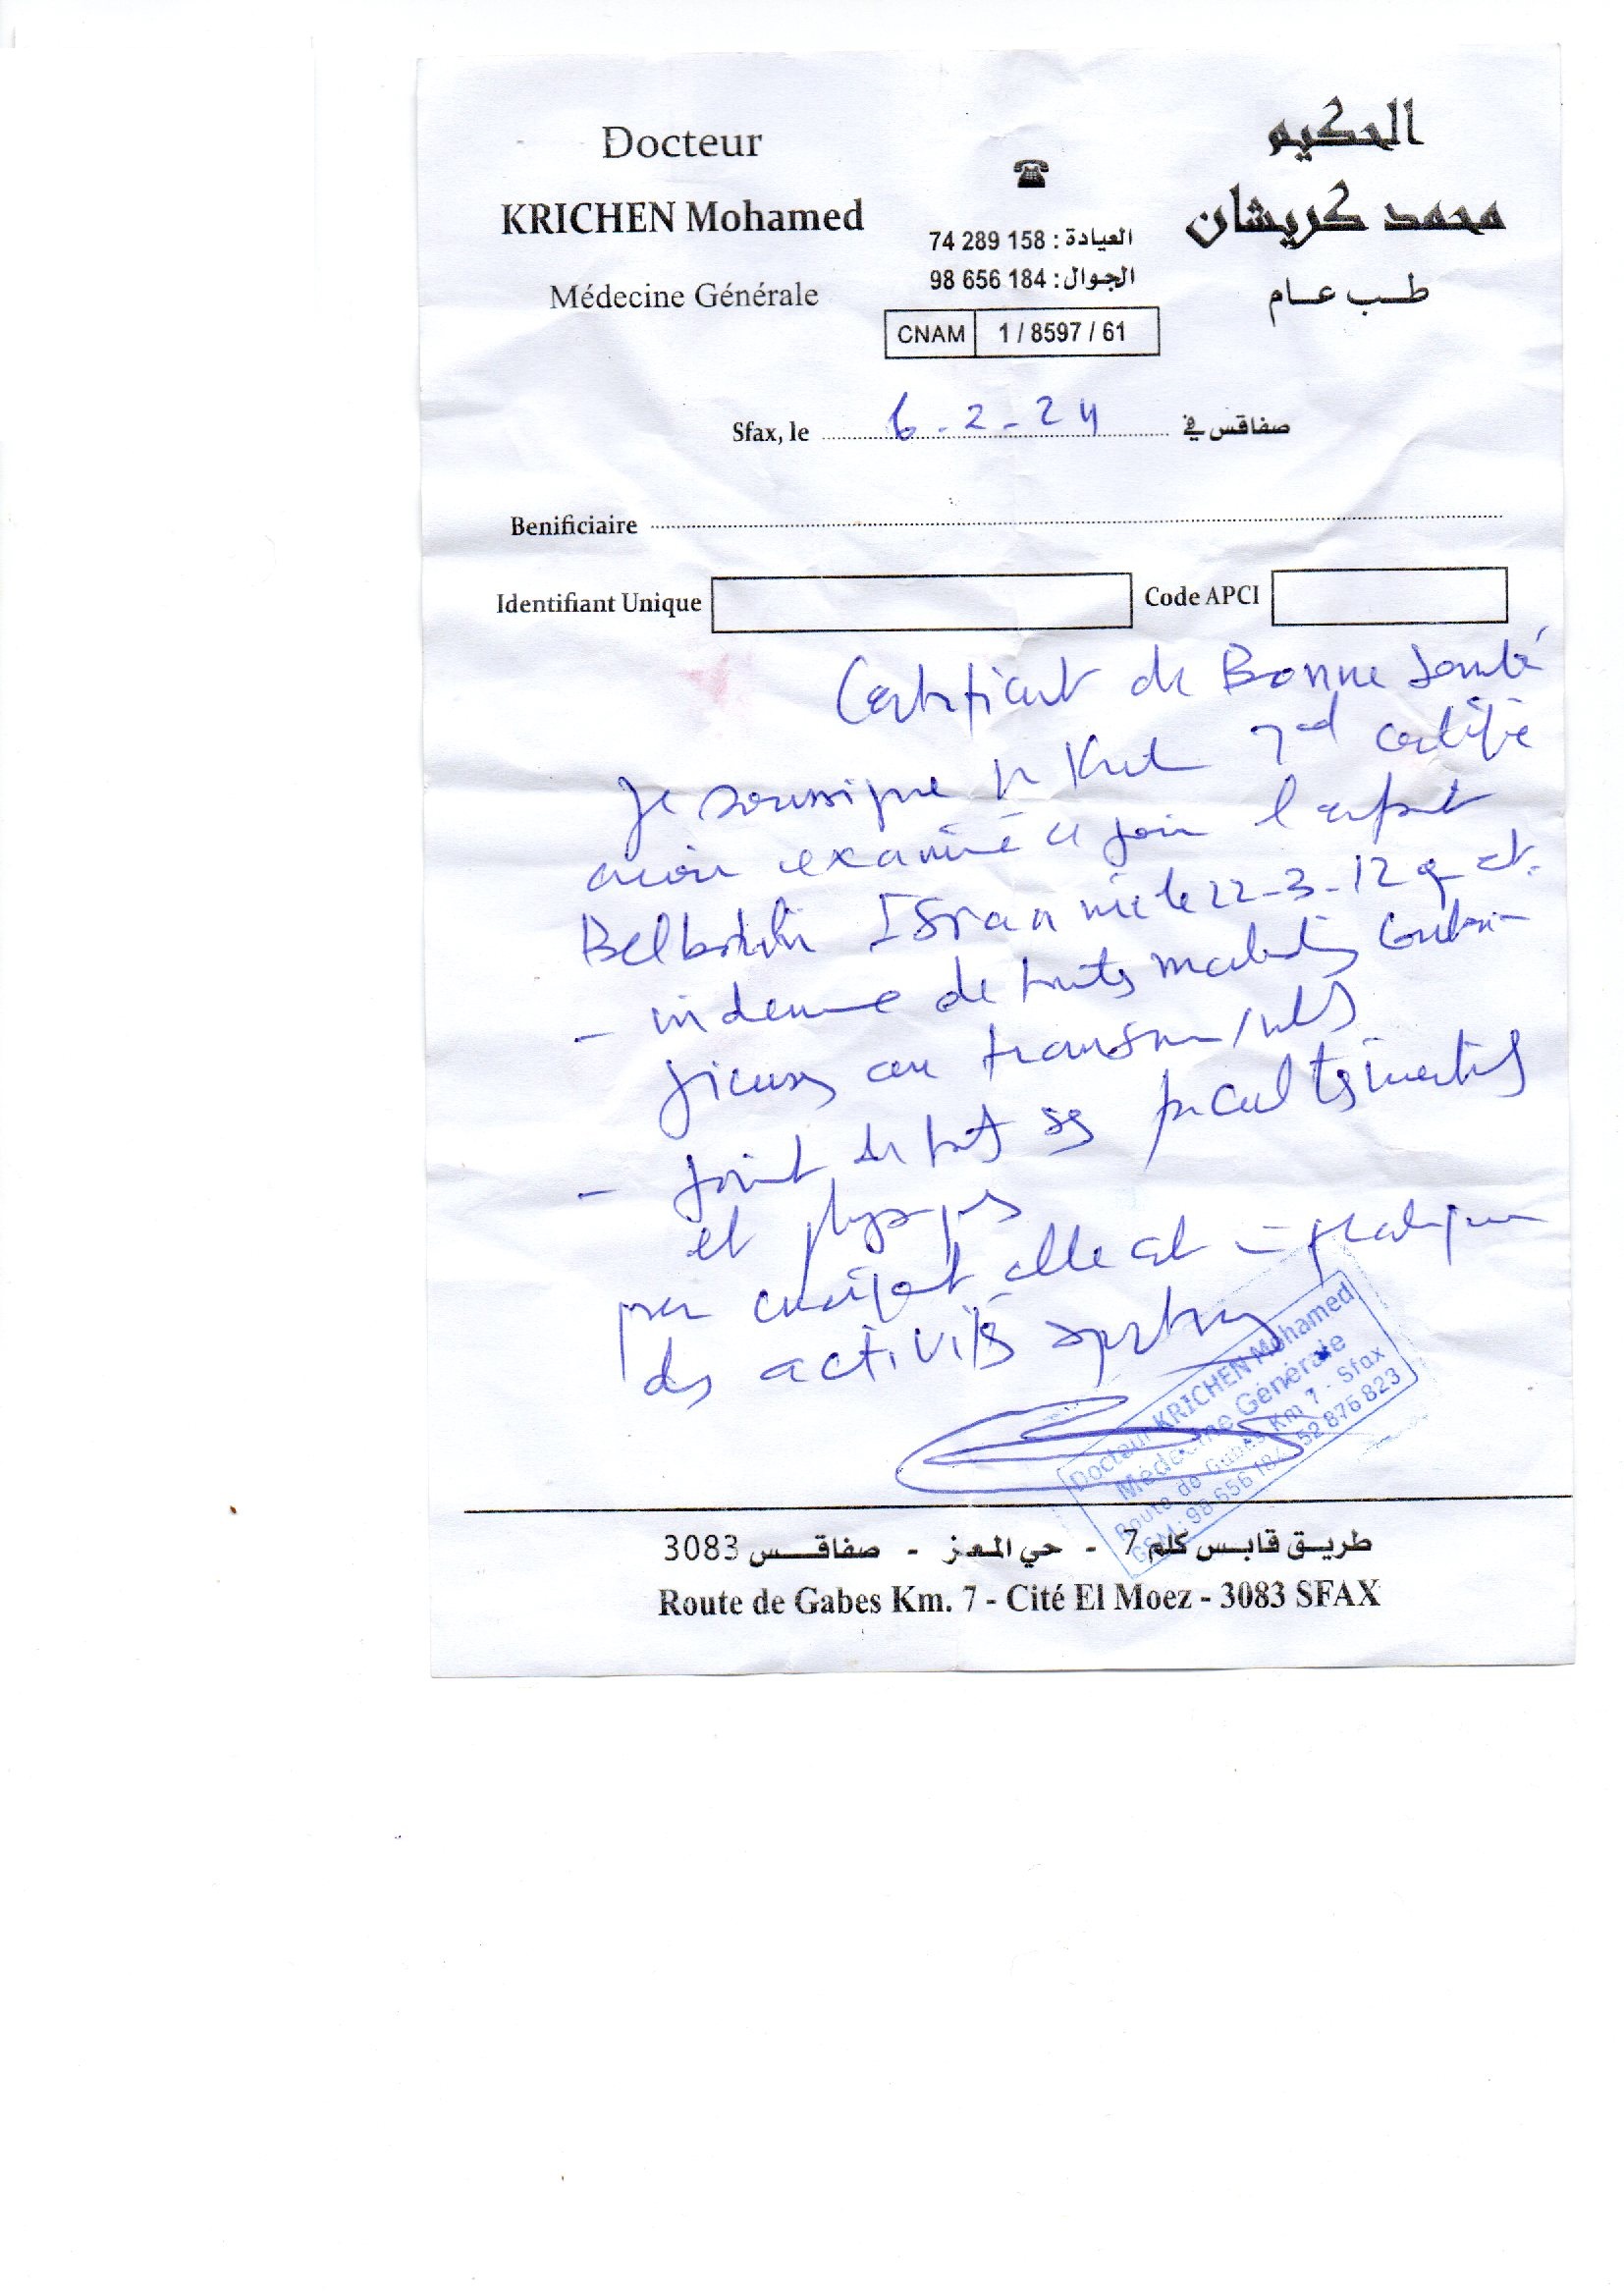 Docteur
KRICHEN Mohamed
Médecine Générale
العيادة : 74 289 158
الجوال : 98 656 184
CNAM 1 / 8597 / 61
الحكيم
محمد كريشان
طب عام
Sfax, le 6-2-24 صفاقس في
Benificiaire
Identifiant Unique Code APCI
Certificat de Bonne Santé
Je soussigné certifie
avoir examiné ce jour l'enfant
Israa née le 22-3-12 q
- indemne de toutes maladies
gieuses ou
- jouit de tout ses facultés
et
par elle est pratiquer
des activités
Docteur KRICHEN Mohamed
Médecine Générale
Route de Gabes Km 7 - Sfax
GSM : 98 656 184 52 876 823
طريق قابس كلم 7 - حي المعز - صفاقس 3083
Route de Gabes Km. 7 - Cité El Moez - 3083 SFAX